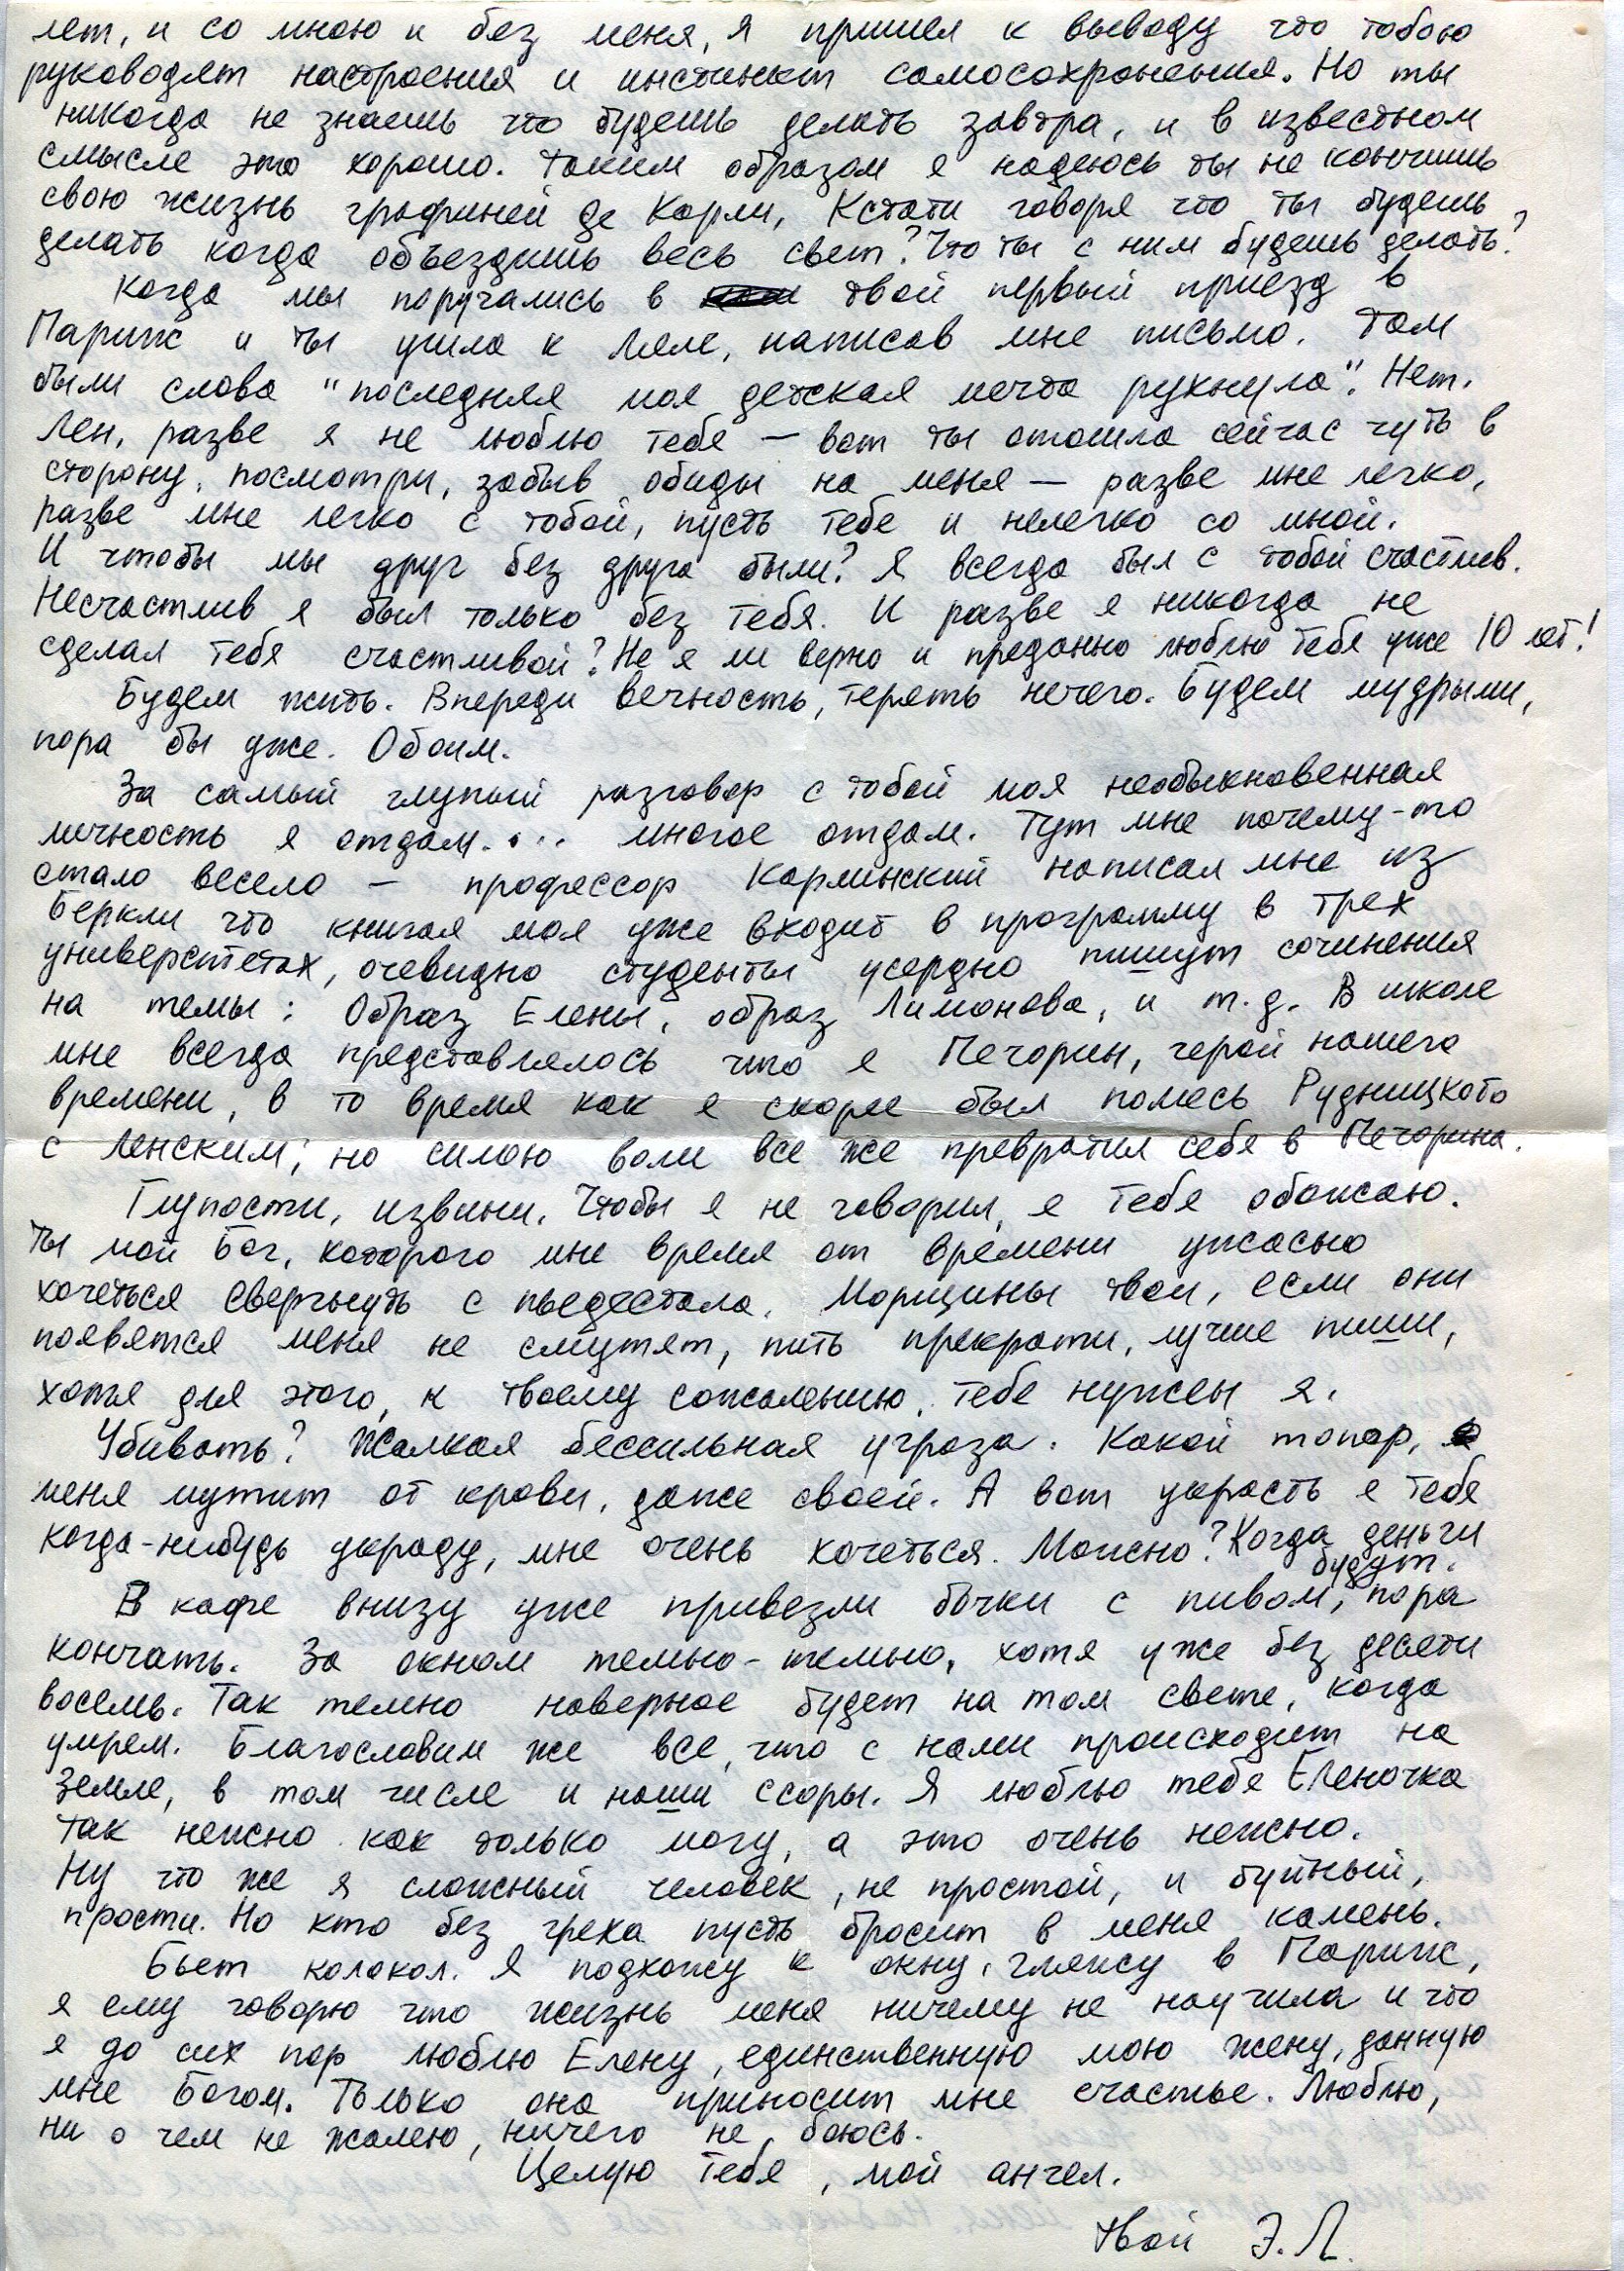 лет, и со мною и без меня, я пришел к выводу что тобою
руководят настроения и инстинкт самосохранения. Но ты
никогда не знаешь что будешь делать завтра, и в известном
смысле это хорошо. Таким образом я надеюсь ты не кончишь
свою жизнь графиней де Карли, Кстати говоря что ты будешь
делать когда объездишь весь свет? Что ты с ним будешь делать?
Когда мы поругались в твой первый приезд в
Париж и ты ушла к Леле, написав мне письмо. Там
были слова "последняя моя детская мечта рухнула". Нет.
Лен, разве я не люблю тебя — вот ты отошла сейчас чуть в
сторону, посмотри, забыв обиды на меня — разве мне легко,
разве мне легко с тобой, пусть тебе и нелегко со мной.
И чтобы мы друг без друга были? Я всегда был с тобой счастлив.
Несчастлив я был только без тебя. И разве я никогда не
сделал тебя счастливой? Не я ли верно и преданно люблю тебя уже 10 лет!
Будем жить. Впереди вечность, терять нечего. Будем мудрыми,
пора бы уже. Обоим.
За самый глупый разговор с тобой моя необыкновенная
личность я отдам.... многое отдам. Тут мне почему-то
стало весело — профессор Карлинский написал мне из
Беркли что книгая моя уже входит в программу в трех
университетах, очевидно студенты усердно пишут сочинения
на темы: Образ Елены, образ Лимонова, и т.д. В школе
мне всегда представлялось что я Печорин, герой нашего
времени, в то время как я скорее был помесь Рудницкого
с Ленским; но силою воли все же превратил себя в Печорина.
Глупости, извини. Чтобы я не говорил, я тебя обожаю.
Ты мой Бог, которого мне время от времени ужасно
хочеться свергнуть с пьедестала. Морщины твои, если они
появятся меня не смутят, пить прекрати, лучше пиши,
хотя для этого, к твоему сожалению, тебе нужен я.
Убивать? Жалкая бессильная угроза. Какой топор,
меня мутит от крови, даже своей. А вот украсть я тебя
когда-нибудь украду, мне очень хочеться. Можно? Когда деньги
будут.
В кафе внизу уже привезли бочки с пивом, пора
кончать. За окном темно-темно, хотя уже без десяти
восемь. Так темно наверное будет на том свете, когда
умрем. Благословим же все, что с нами происходит на
земле, в том числе и наши ссоры. Я люблю тебя Еленочка
так нежно как только могу, а это очень нежно.
Ну что же я сложный человек, не простой, и буйный,
прости. Но кто без греха пусть бросит в меня камень.
Бьет колокол. Я подхожу к окну, гляжу в Париж,
я ему говорю что жизнь меня ничему не научила и что
я до сих пор люблю Елену, единственную мою жену, данную
мне Богом. Только она приносит мне счастье. Люблю,
ни о чем не жалею, ничего не боюсь.
Целую тебя, мой ангел.
твой Э.Л.